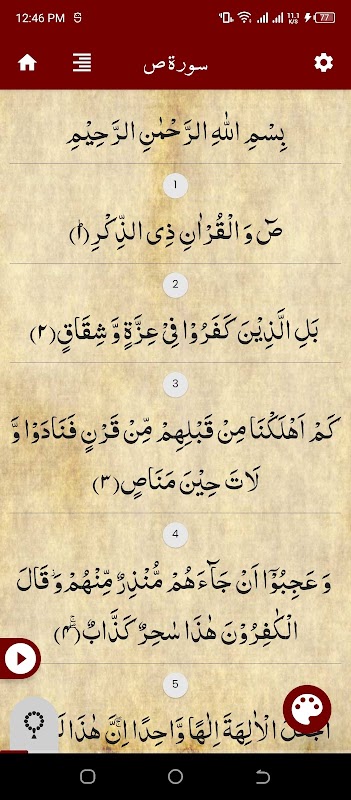 12:46 PM
11.1 K/S
77
سورة ص
بِسْمِ اللّٰهِ الرَّحْمٰنِ الرَّحِیْمِ
1
صٓ وَ الْقُرْاٰنِ ذِی الذِّكْرِ(۱)
2
بَلِ الَّذِیْنَ كَفَرُوْا فِیْ عِزَّةٍ وَّ شِقَاقٍ(۲)
3
كَمْ اَهْلَكْنَا مِنْ قَبْلِهِمْ مِّنْ قَرْنٍ فَنَادَوْا وَّ
لَاتَ حِیْنَ مَنَاصٍ(۳)
4
وَ عَجِبُوْۤا اَنْ جَآءَهُمْ مُّنْذِرٌ مِّنْهُمْ٘-وَ قَالَ
الْكٰفِرُوْنَ هٰذَا سٰحِرٌ كَذَّابٌۖۚ(۴)
5
الْاٰلِهَةَ اِلٰهًا وَّاحِدًا ۚۖ اِنَّ هٰذَا